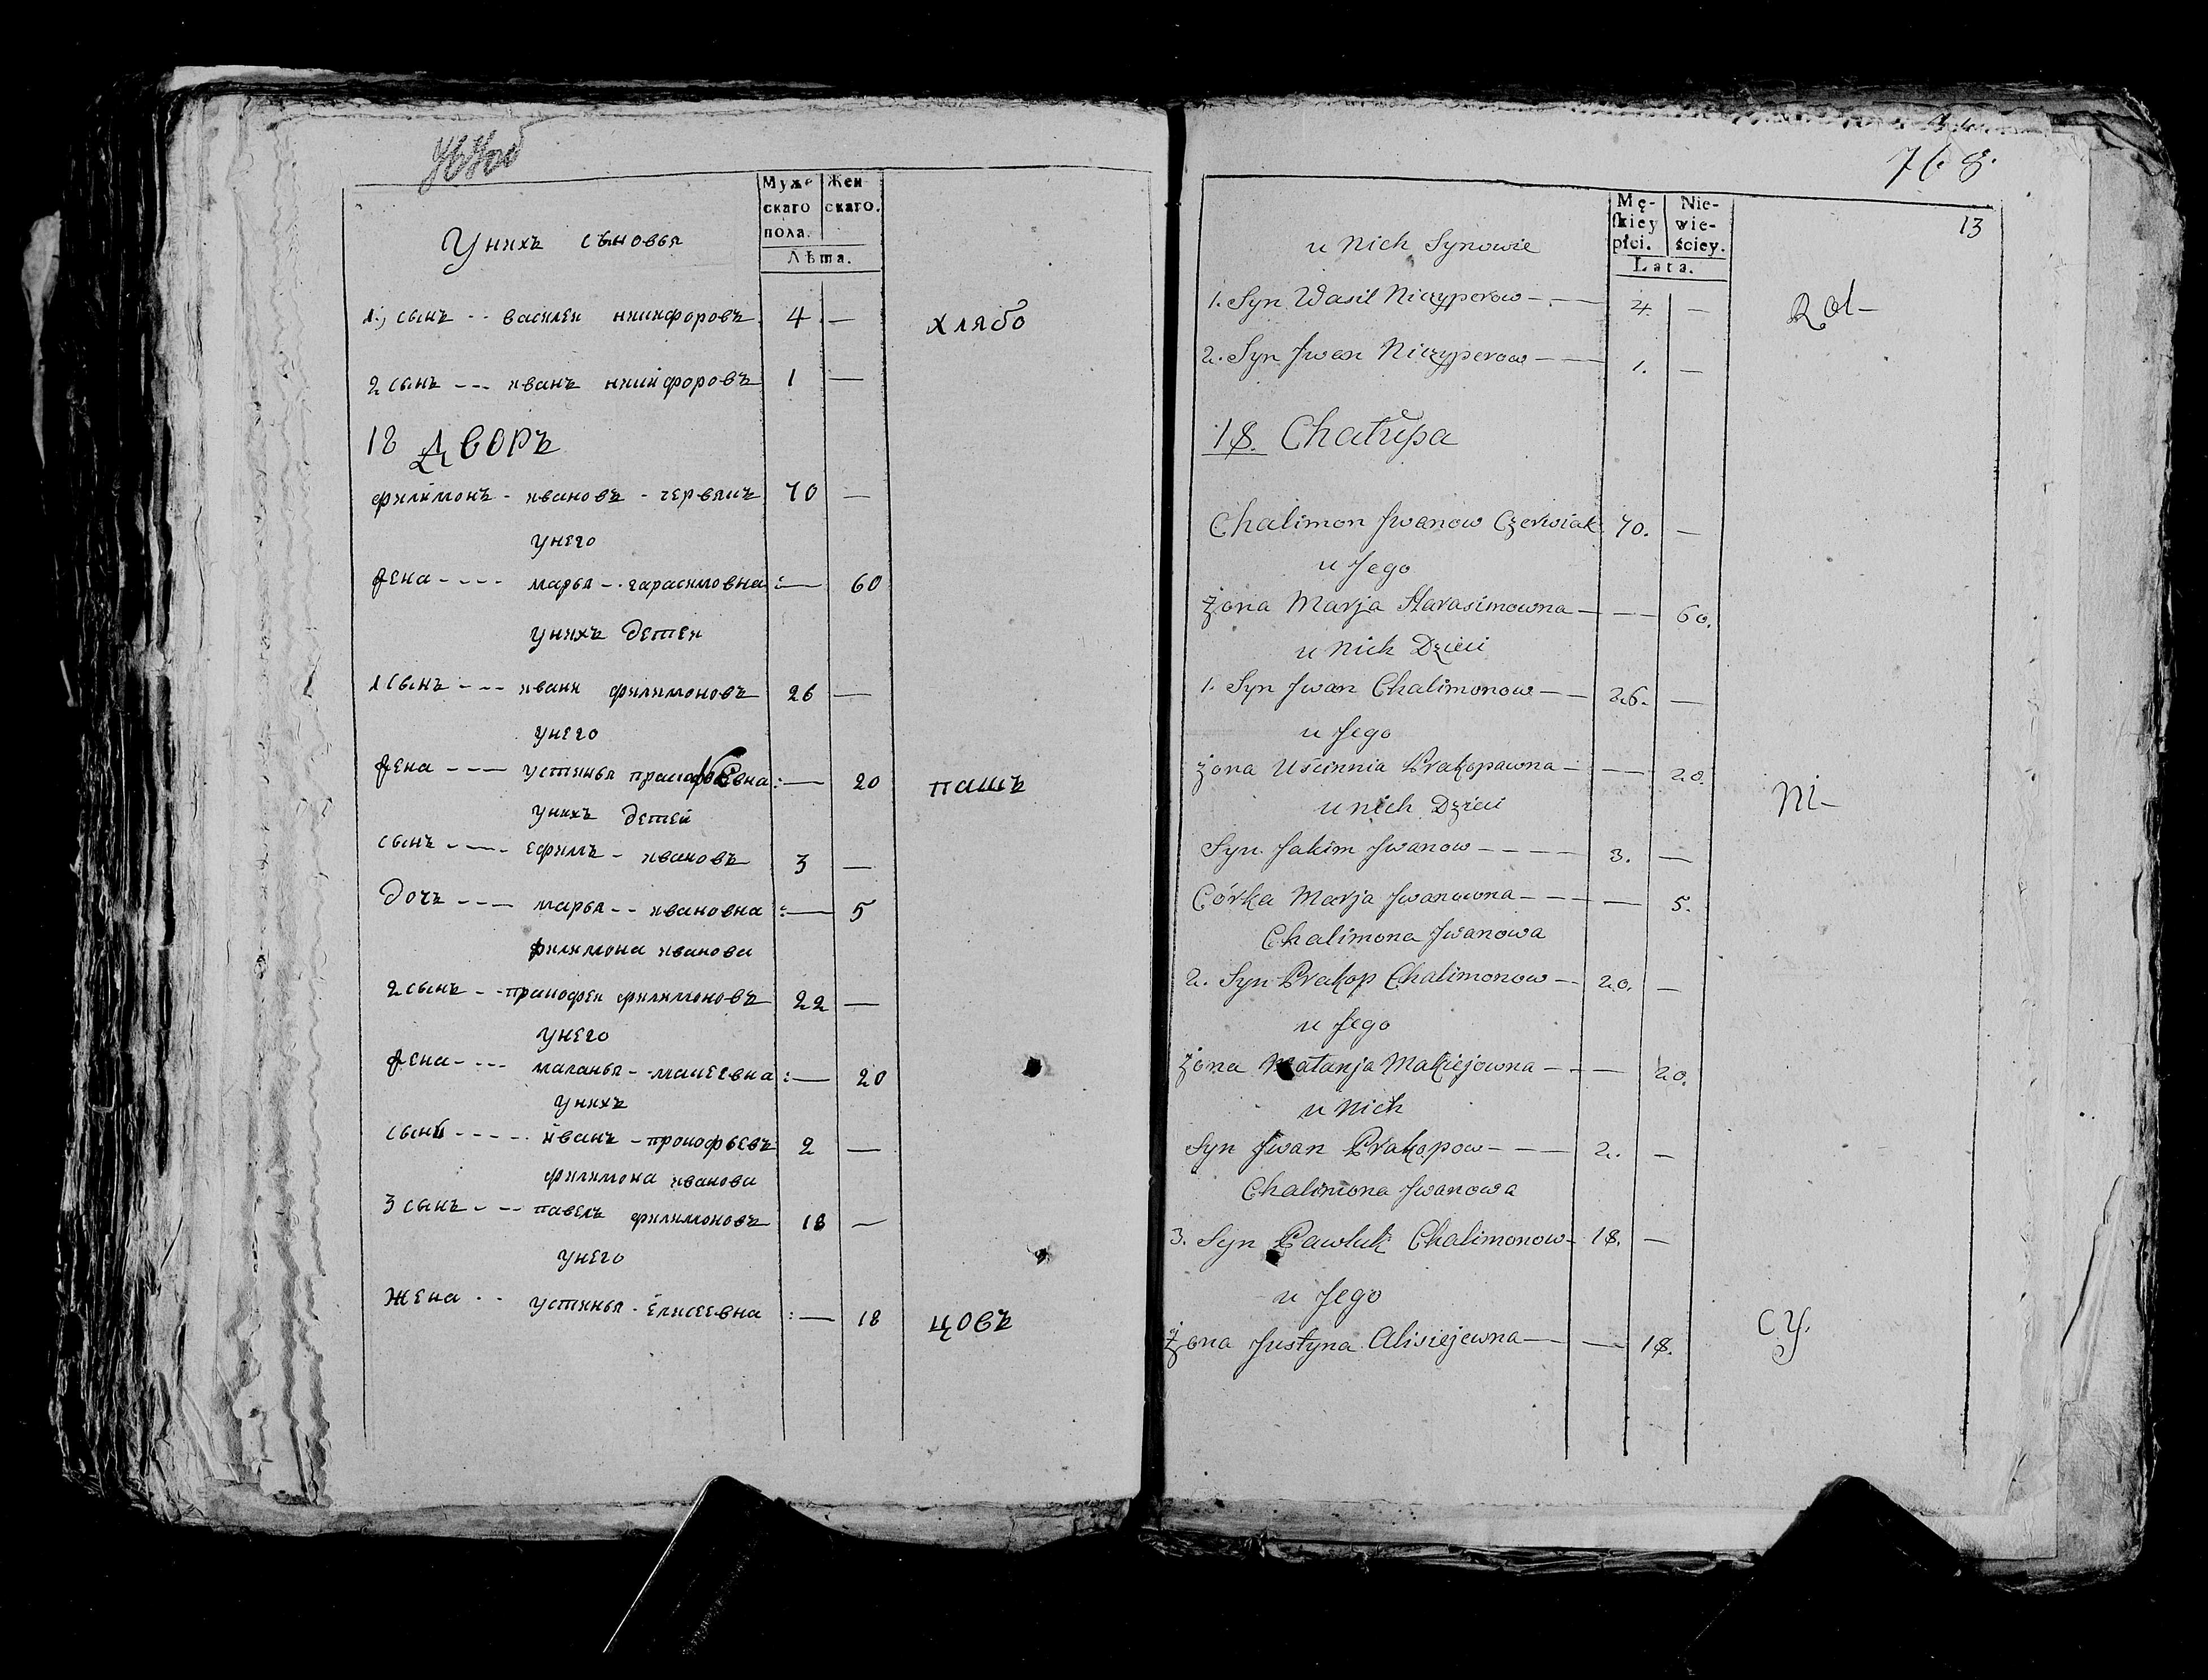 Муже скаго пола. Жен скаго.
Лѣта.
Унихъ сыновья
1, сынъ -- василеи никифоровъ 4 — хлябо
2 сынъ --- иванъ никифоровъ 1 —
18 дворъ
филимонъ - ивановъ - червякъ 70 —
унего
жена ---- марья -- гарасимовна :— 60
унихъ детеи
1 сынъ --- иванъ филимоновъ 26 —
унего
жена --- устинья пракофьевна :— 20 пашъ
унихъ детей
сынъ ---- ефимъ - ивановъ 3 —
дочъ --- марья -- ивановна :— 5
филимона иванова
2 сынъ -- пракофеи филимоновъ 22 —
унего
жена ---- маланья -- макеевна :— 20
унихъ
сынъ ----- иванъ - прокофьевъ 2 —
филимона иванова
3 сынъ --- павелъ филимоновъ 18 —
унего
жена -- устинья - елисеевна :— 18 цовъ
768.
13
Mę- skiey płci. Nie- wie- ściey.
Lata.
u Nich Synowie
1. Syn Wasil Niczyperow — 4. — Rol-
2. Syn Jwan Niczyperow — 1. —
18. Chałupa
Chalimon Jwanow Czerwiak 70. —
u Jego
żona Marja Harasimowna — — 60.
u Nich Dzieci
1. Syn Jwan Chalimonow — 26. —
u Jego
żona Uścinnia Prakopawna — — 20. ni-
u nich Dzieci
Syn Jakim Jwanow ---- 3. —
Córka Marja Jwanowna --- — 5.
Chalimona Jwanowa
2. Syn Prakop Chalimonow -- 20. —
u Jego
żona Matanja Makiejowna -- — 20.
u Nich
Syn Jwan Prakopow --- 2. —
Chalimona Jwanowa
3. Syn Pawluk Chalimonow - 18. —
u Jego
żona Justyna Alisiejewna — — 18. cy.